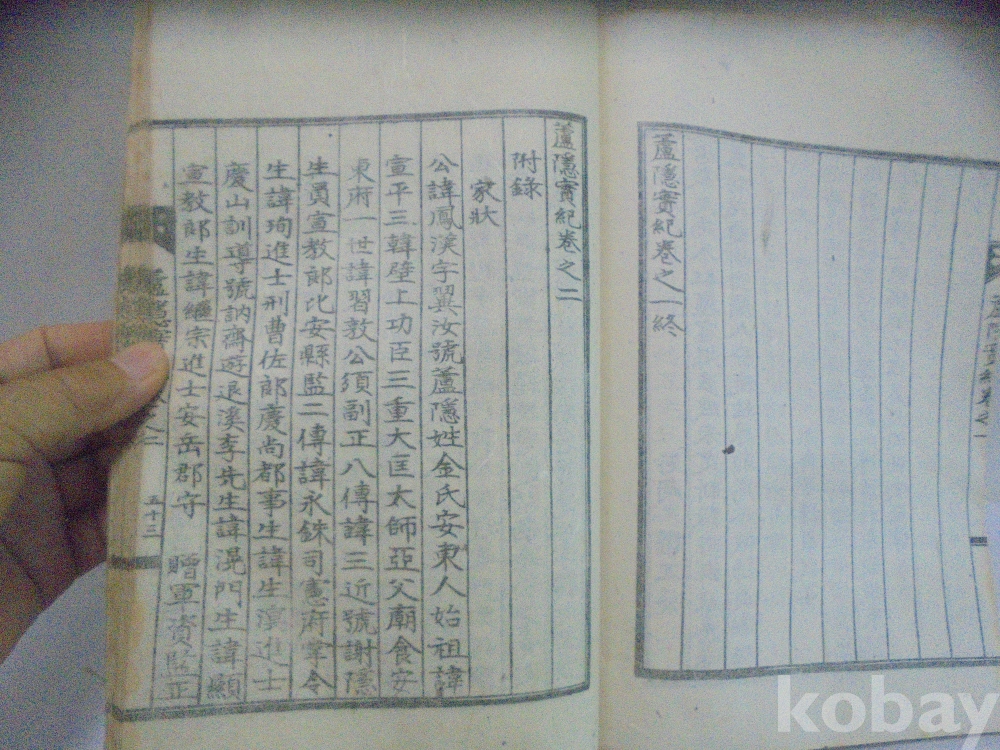 蘆隱實紀卷之一終
蘆隱實紀卷之一
蘆隱實紀卷之二
附錄
家狀
公諱鳳漢字翼汝號蘆隱姓金氏安東人始祖諱
宣平三韓壁上功臣三重大匡太師亞父廟食安
東府一世諱習敦公須副正八傳諱三近號謝隱
生員宣教郎比安縣監二傳諱永銖司憲府掌令
生諱珣進士刑曹佐郎慶尚都事生諱生溟進士
慶山訓導號訥齋遊退溪李先生諱滉門生諱顯
宣教郎生諱繼宗進士安岳郡守 贈軍資監正
五十三
kobay